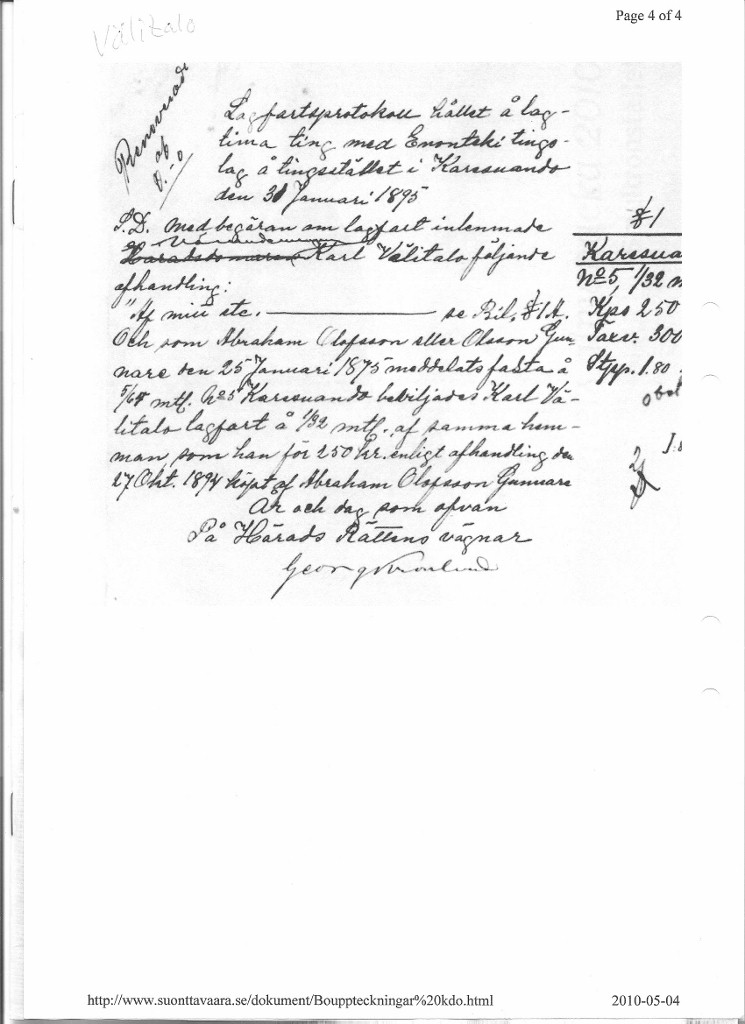 Page 4 of 4
Välitalo
Renoverade
Lagfartsprotokoll hållet å lag-
tima ting med Enonteki tings-
lag å tingsstället i Karesuando
den 31 Januari 1895
S.D. med begäran om lagfart inlemnade
Karl Välitalo följande
afhandling:
"Af mitt etc. ——— se Bil. § 1 A.
Och som Abraham Olofsson eller Olsson Gun-
nare den 25 Januari 1875 meddelats fasta å
5/64 mtl. No 5 Karesuando beviljades Karl Vä-
litalo lagfart å 1/32 mtl. af samma hem-
man som han för 250 kr. enligt afhandling den
27 Okt. 1894 köpt af Abraham Olofsson Gunnare
År och dag som ofvan
På Härads Rättens vägnar
§ 1
Karesua
No 5, 1/32 m
Kps 250
Taxv. 300
Stpp. 1.80
http://www.suonttavaara.se/dokument/Bouppteckningar%20kdo.html
2010-05-04